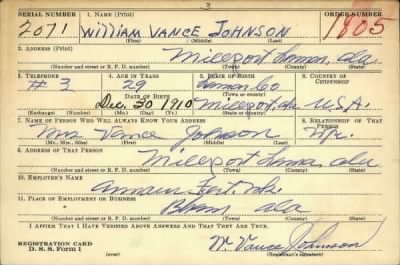 SERIAL NUMBER 1. NAME (Print) ORDER NUMBER
2071 William Vance Johnson 1805
(First) (Middle) (Last)
2. ADDRESS (Print)
Millport Lamar, Ala
(Number and street or R. F. D. number) (Town) (County) (State)
3. TELEPHONE 4. AGE IN YEARS 5. PLACE OF BIRTH 6. COUNTRY OF CITIZENSHIP
#3 29 Lamar Co
DATE OF BIRTH (Town or county)
Dec. 30 1910 Millport, Ala U.S.A.
(Exchange) (Number) (Mo.) (Day) (Yr.) (State or country)
7. NAME OF PERSON WHO WILL ALWAYS KNOW YOUR ADDRESS 8. RELATIONSHIP OF THAT PERSON
Mrs. Vance Johnson
(Mr., Mrs., Miss) (First) (Middle) (Last)
9. ADDRESS OF THAT PERSON
Millport Lamar, Ala
(Number and street or R. F. D. number) (Town) (County) (State)
10. EMPLOYER'S NAME
Fert.
11. PLACE OF EMPLOYMENT OR BUSINESS
Bham Ala
(Number and street or R. F. D. number) (Town) (County) (State)
I AFFIRM THAT I HAVE VERIFIED ABOVE ANSWERS AND THAT THEY ARE TRUE.
REGISTRATION CARD W. Vance Johnson
D. S. S. Form 1 (Registrant's signature)